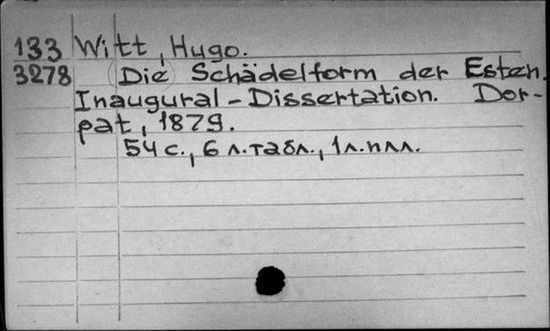 133 Witt, Hugo.
3278 (Die) Schädelform der Esten.
Inaugural-Dissertation. Dor-
pat, 1879.
54 с., 6 л. табл., 1 л. илл.